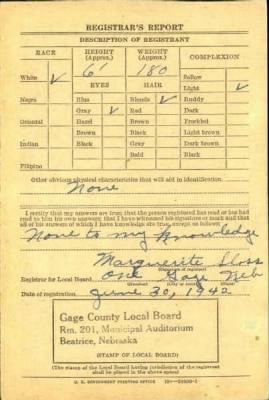 REGISTRAR'S REPORT
DESCRIPTION OF REGISTRANT
RACE HEIGHT (Approx.) WEIGHT (Approx.) COMPLEXION
6' 180 Sallow
White ✓ EYES HAIR Light ✓
Negro Blue Blonde ✓ Ruddy
Gray ✓ Red Dark
Oriental Hazel Brown Freckled
Brown Black Light brown
Indian Black Gray Dark brown
Bald Black
Filipino
Other obvious physical characteristics that will aid in identification
None
I certify that my answers are true; that the person registered has read or has had
read to him his own answers; that I have witnessed his signature or mark and that
all of his answers of which I have knowledge are true, except as follows:
None to my Knowledge
Marguerite
(Signature of registrar)
Registrar for Local Board One Gage Neb
(Number) (City or county) (State)
Date of registration June 30, 1942
Gage County Local Board
Rm. 201, Municipal Auditorium
Beatrice, Nebraska
(STAMP OF LOCAL BOARD)
(The stamp of the Local Board having jurisdiction of the registrant
shall be placed in the above space)
U. S. GOVERNMENT PRINTING OFFICE